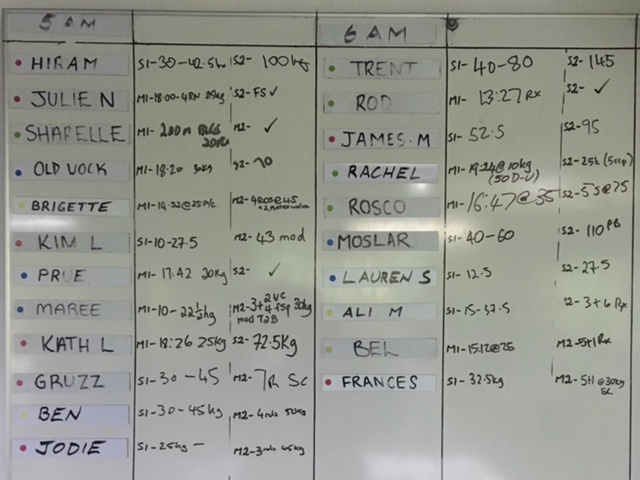 5 AM
HIRAM S1-30-42.5kg S2-100kg
JULIE N M1-18:00-4RN 25kg S2-FS ✓
SHARELLE M1-200m ✓
OLD VOCK M1-18:20 S2-70
BRIGETTE M1-14:32@25
KIM L S1-10-27.5 M2-43 mod
PRUE M1-17.42 20kg S2- ✓
MAREE M1-10-22½kg M2-3+ 30kg
mod T2B
KATH L M1-18:26 25kg S2-72.5kg
GRUZZ S1-30-45 M2-7R SC
BEN S1-30-45kg M2-4rnds 50kg
JODIE S1-25kg - M2-3rnds 45kg
6 AM
TRENT S1-40-80 S2-145
ROD M1-13:27 Rx S2- ✓
JAMES.M S1-52.5 S2-95
RACHEL M1-19:24@10kg S2-25k
(50 D-U)
ROSCO M1-16:47@35 S2-55@75
MOSLAR S1-40-60 S2-110 PB
LAUREN S S1-12.5 S2-27.5
ALI M S1-15-37.5 2-3+6 Rx
BEL M1-15:12@25 M2-5+1 Rx
FRANCES S1-32.5kg M2-5+1@30kg
SC